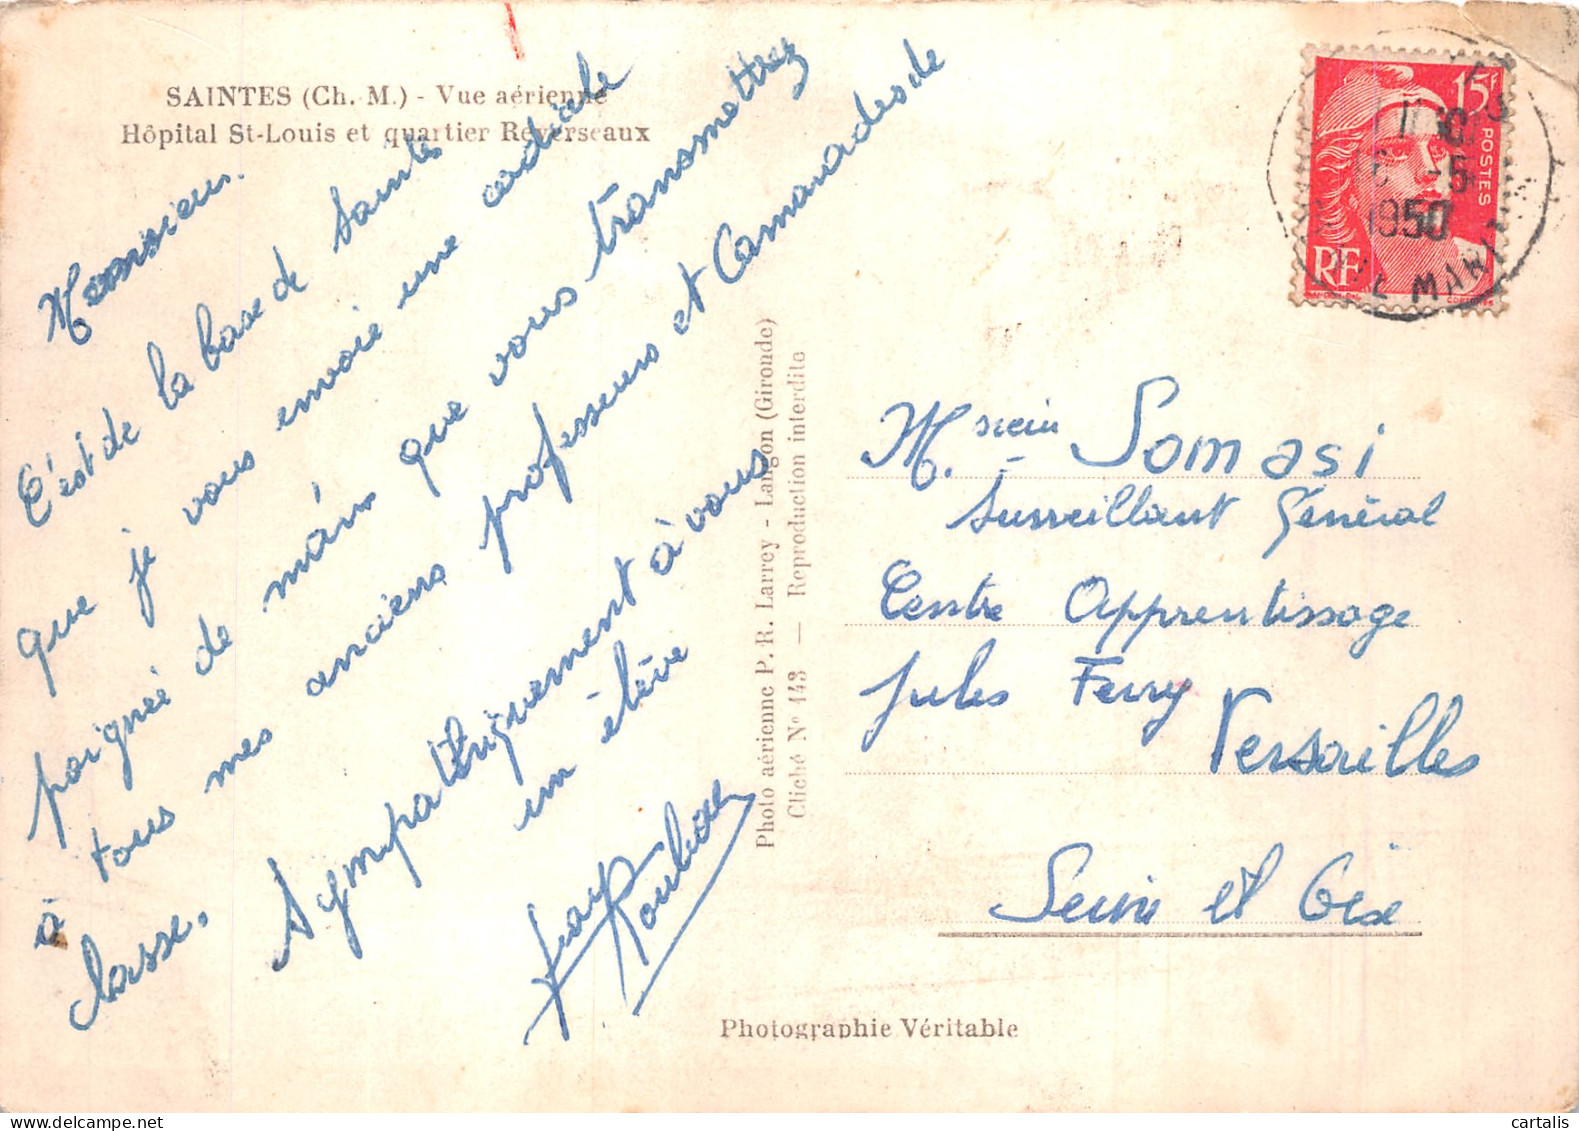 SAINTES (Ch. M.) - Vue aérienne
Hôpital St-Louis et quartier Reverseaux
Monsieur.
C'est de la base de Saintes
que je vous envoie une cordiale
poignée de main que vous transmettrez
à tous mes anciens professeurs et Camarades de
classe.
Sympathiquement à vous
un élève
Photo aérienne P. R. Larrey - Langon (Gironde)
Cliché N° 143 — Reproduction interdite
15F
POSTES
RF
6 -5
1950
M. Somasi
Surveillant Général
Centre Apprentissage
Jules Ferry
Versailles
Seine et Oise
Photographie Véritable
cartalis